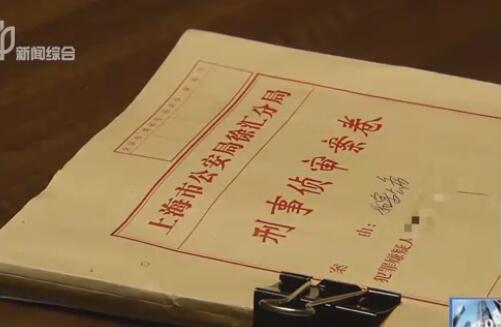 新闻综合
上海市公安局徐汇分局
刑事侦审案卷
案 由:
犯罪嫌疑人